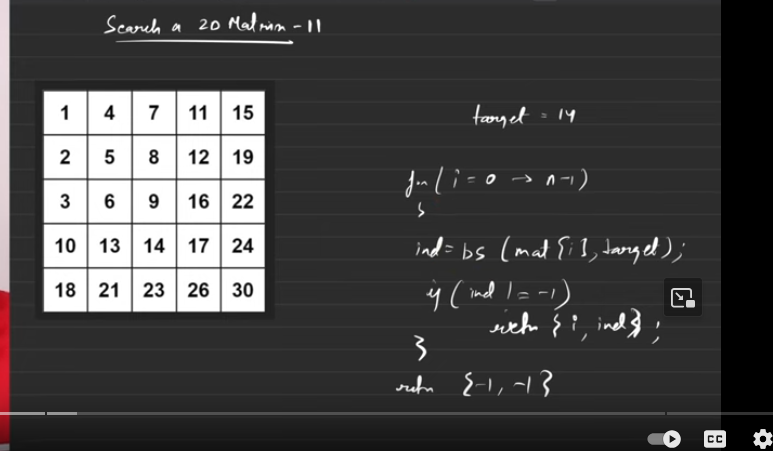 Search a 2D Matrix - II
target = 14
1 4 7 11 15
2 5 8 12 19
3 6 9 16 22
10 13 14 17 24
18 21 23 26 30
for (i = 0 → n-1)
{
ind = bs (mat[i], target);
if (ind != -1)
return {i, ind};
}
return {-1, -1}
CC